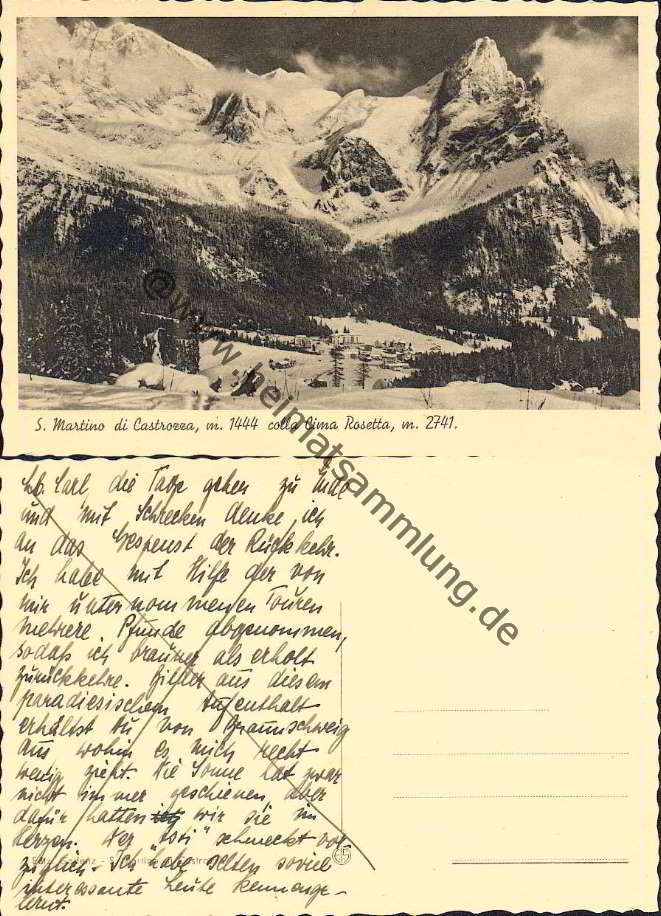 S. Martino di Castrozza, m. 1444 colla Cima Rosetta, m. 2741.
© www.heimatsammlung.de
Lb. Carl, die Tage gehen zu Ende
und mit Schrecken denke ich
an das Gespenst der Rückkehr.
Ich habe mit Hilfe der von
mir unternommenen Touren
mehrere Pfunde abgenommen,
sodaß ich brauner als erholt
zurückkehre. Bilder aus diesem
paradiesischen Aufenthalt
erhältst Du von Braunschweig
aus wohin es mich recht
wenig zieht. Die Sonne hat zwar
nicht immer geschienen, aber
dafür hatten wir sie im
Herzen. Der "Asti" schmeckt vor-
züglich. Ich habe selten soviel
interessante Leute kennenge-
lernt.